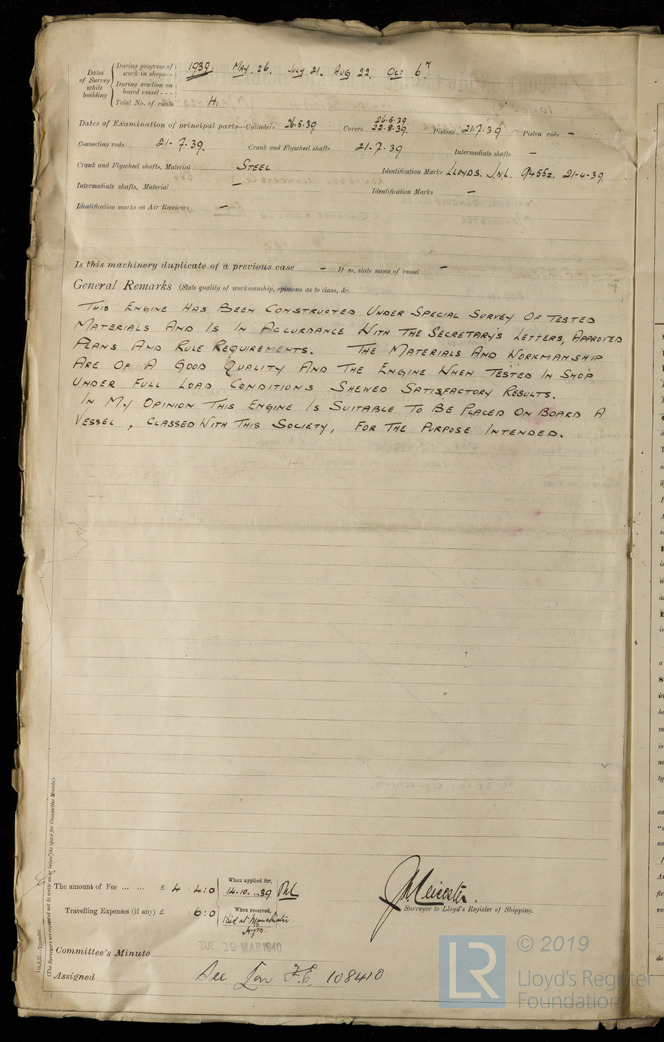 Dates of Survey while building
During progress of work in shops - - 1939. MAY. 26. JULY 21. AUG 22. OCT 6.
During erection on board vessel - - -
Total No. of visits 4.
Dates of Examination of principal parts—Cylinders 26-5-39 Covers 26-5-39. 22-8-39. Pistons 21-7-39 Piston rods -
Connecting rods 21-7-39. Crank and Flywheel shafts 21-7-39 Intermediate shafts -
Crank and Flywheel shafts, Material STEEL Identification Marks LLOYDS. J.N.L. 21-4-39.
Intermediate shafts, Material - Identification Marks -
Identification marks on Air Receivers -
Is this machinery duplicate of a previous case - If so, state name of vessel -
General Remarks (State quality of workmanship, opinions as to class, &c.
THIS ENGINE HAS BEEN CONSTRUCTED UNDER SPECIAL SURVEY OF TESTED
MATERIALS AND IS IN ACCURDANCE WITH THE SECRETARY'S LETTERS, APPROVED
PLANS AND RULE REQUIREMENTS. THE MATERIALS AND WORKMANSHIP
ARE OF A GOOD QUALITY AND THE ENGINE WHEN TESTED IN SHOP
UNDER FULL LOAD CONDITIONS SHEWED SATISFACTORY RESULTS.
IN MY OPINION THIS ENGINE IS SUITABLE TO BE PLACED ON BOARD A
VESSEL, CLASSED WITH THIS SOCIETY, FOR THE PURPOSE INTENDED.
(The Surveyors are requested not to write on or below the space for Committee Minute.)
The amount of Fee ... ... £ 4 4:0 When applied for, 14.10.1939
Travelling Expenses (if any) £ 6:0 When received, Paid at Manchester
J.N. Leicester.
Surveyor to Lloyd's Register of Shipping.
TUE. 19 MAR 1940
Committee's Minute
Assigned See F.E. 108410
LR
© 2019
Lloyd's Register
Foundation